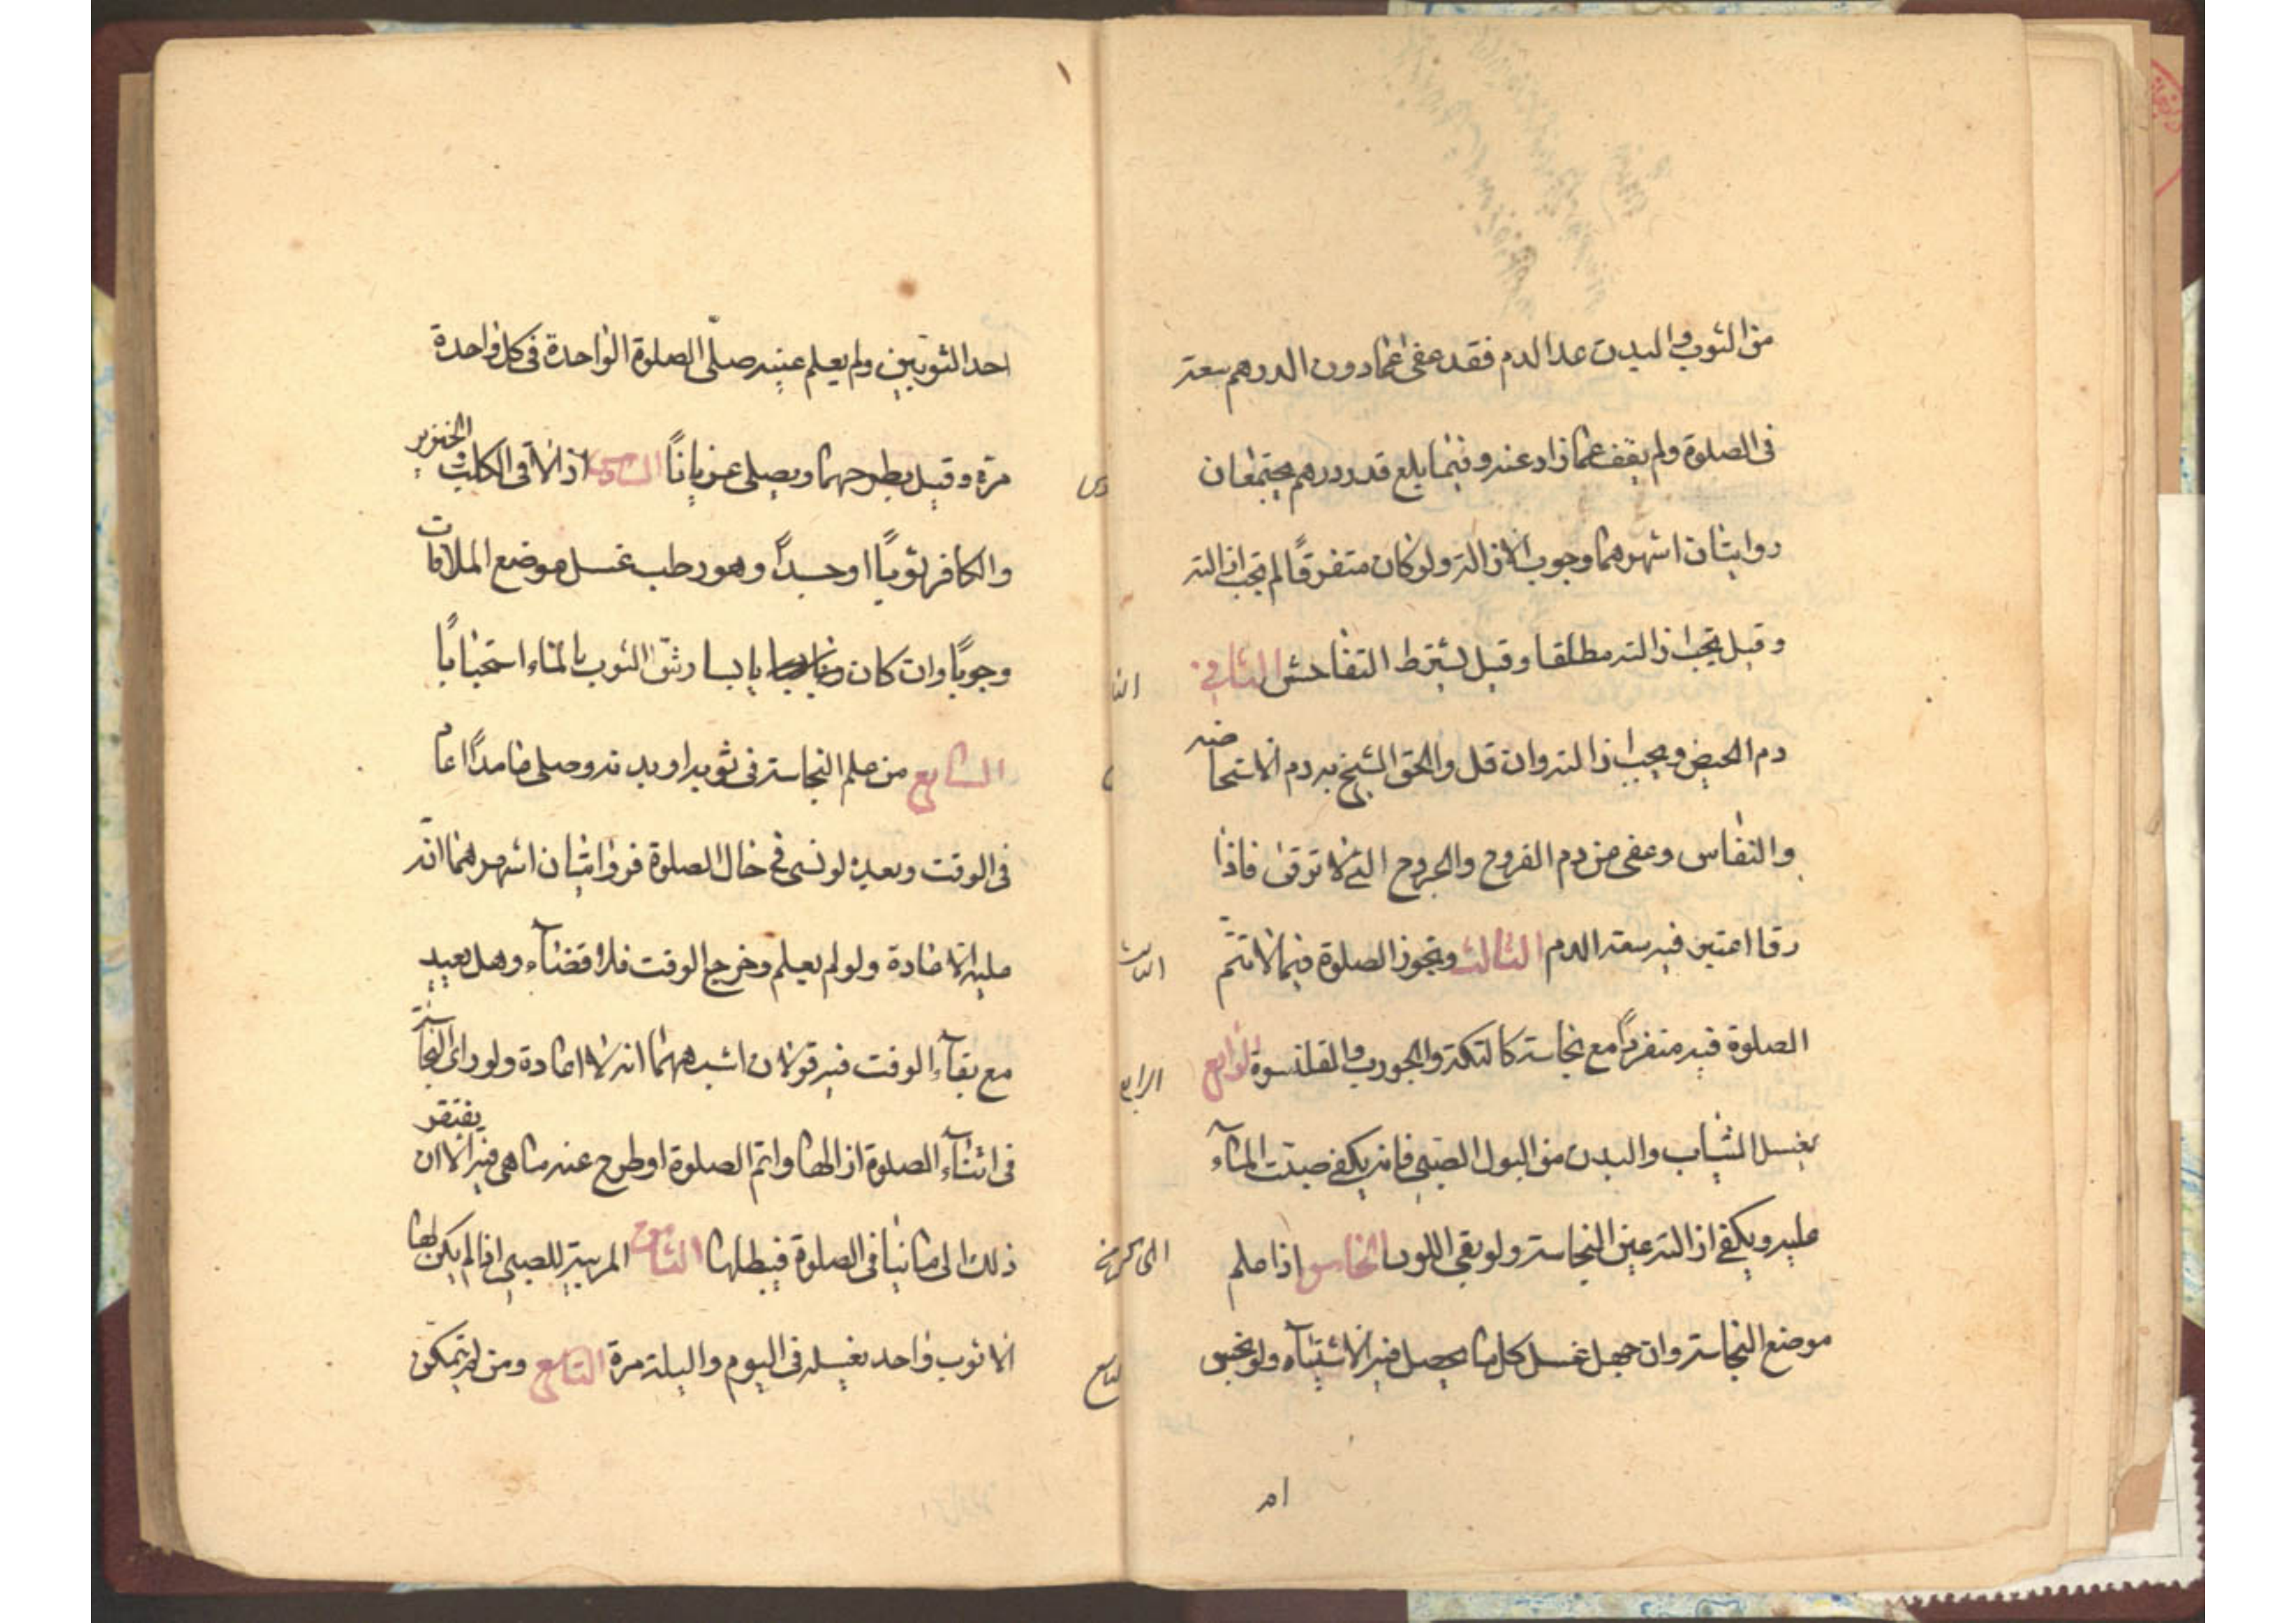 من الثوب والبدن عدا الدم فقد عفى عما دون الدرهم سعة
فى الصلوة ولم يعف عما زاد عنه وفيما بلغ قدر درهم مجتمعا ن
روايتان اشهرهما وجوب الازالة ولو كان متفرقًا لم تجب ازالته
وقيل تجب ازالته مطلقا وقيل بشرط التفاحش الثانى
دم الحيض ويجب ازالته وان قل والحق الشيخ به دم الاستحاضه
والنفاس وعفى من دم القروح والجروح التى لا ترقى فاذا
رقا اعتبر فيه سعة الدم الثالث وتجوز الصلوة فيما لا تتم
الصلوة فيه منفردًا مع نجاسته كالتكة والجورب والقلنسوة الرابع
يغسل الثياب والبدن من البول الصبى فانه يكفى صبت المآء
عليه ويكفى ازالة عين النجاسة ولو بقى اللون الخامس اذا علم
موضع النجاسة وان جهل غسل كل ما يحصل فيه الاشتباه ولو نجس
ام
الثا
الثالث
الرابع
١
احد الثوبين ولم يعلم عينه صلّى الصلوة الواحدة فى كل واحدة
مرة وقيل يطرحهما ويصلى عريانًا السادس اذ لاقى الكلب والخنزير
والكافر ثوبًا او جسدًا وهو رطب غسل موضع الملاقات
وجوبًا وان كان يابسا رش الثوب بالماء استحبابًا
السابع من علم النجاسة فى ثوبه او بدنه وصلى عامدًا اعاد
فى الوقت وبعده لو نسى فى حال الصلوة فروايتان اشهرهما انّ
عليه الاعادة ولو لم يعلم وخرج الوقت فلا قضآء وهل يعيد
مع بقآء الوقت فيه قولان اشبههما انه لا اعادة ولو راى النجاسة
فى اثنآء الصلوة ازالها واتم الصلوة او طرح عنه ما هى فيه الا ان يفتقر
ذلك الى ما ينافى الصلوة فيبطلها الثامن المربية للصبى اذا لم يكن لها
الا ثوب واحد يغسله فى اليوم والليلة مرة التاسع ومن لم يتمكن